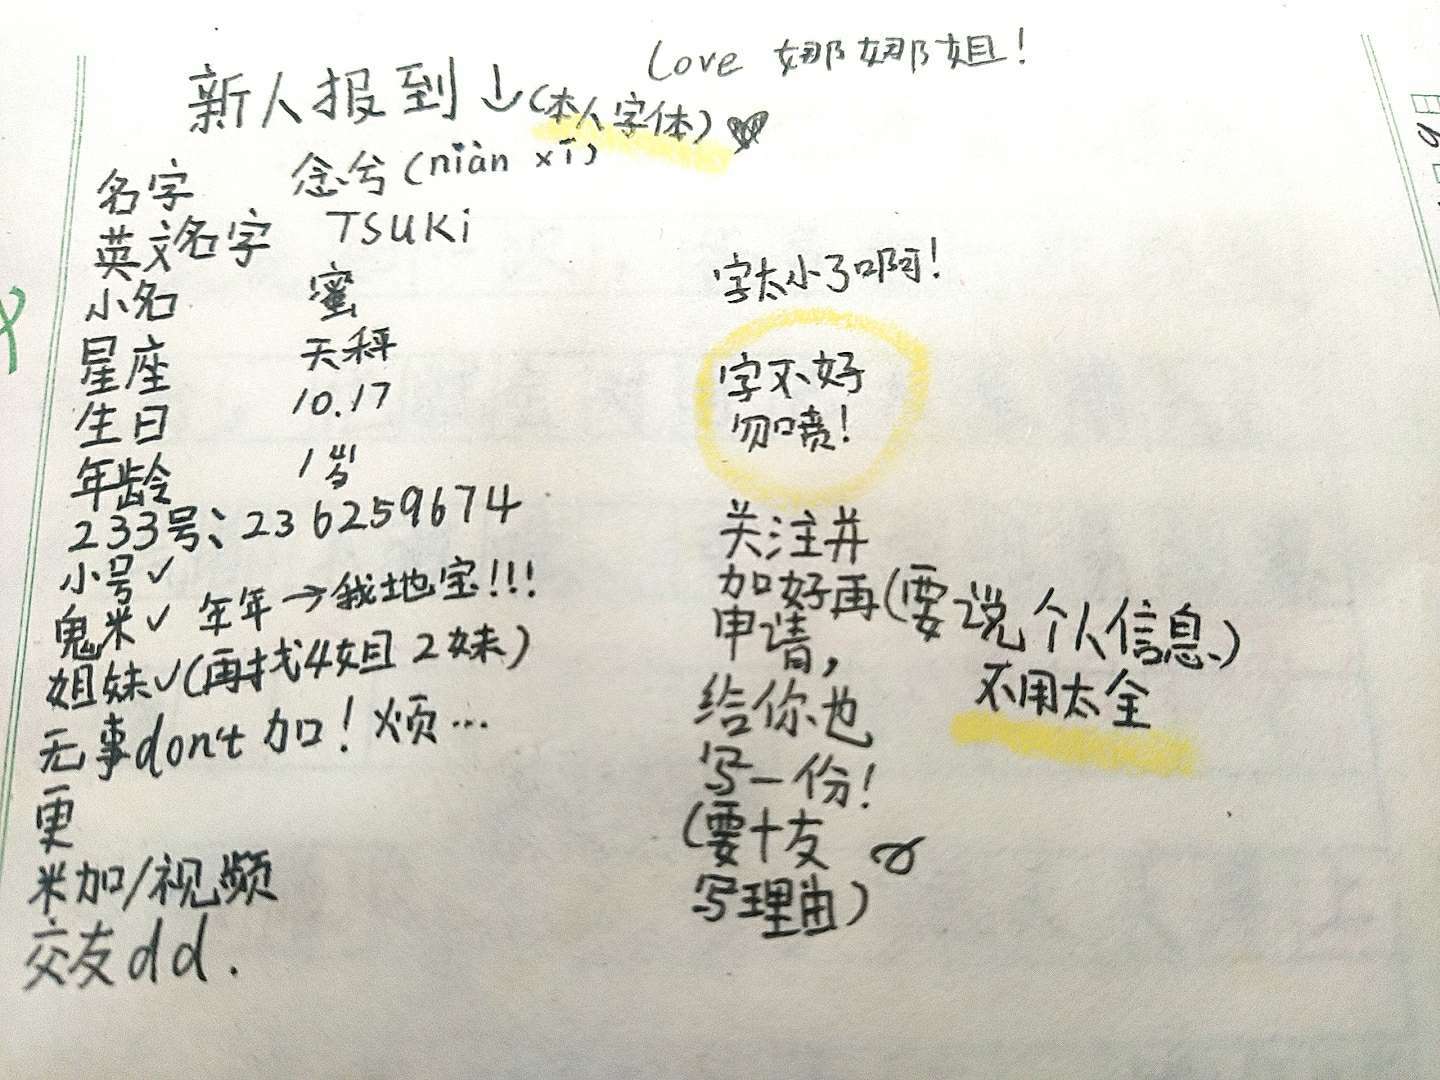 Love 娜娜姐!
新人报到↓(本人字体)
名字 念兮(niàn xī)
英文名字 TSUKi
小名 蜜
星座 天秤
生日 10.17
年龄 1岁
233号:236259674
小号✓
鬼米✓ 年年→我地宝!!!
姐妹✓(再找4姐2妹)
无事don't加!烦…
更
米加/视频
交友dd.
字太小了啊!
字不好
勿喷!
关注并
加好再(要说个人信息)
申请,
不用太全
给你也
写一份!
(要十友
写理由)